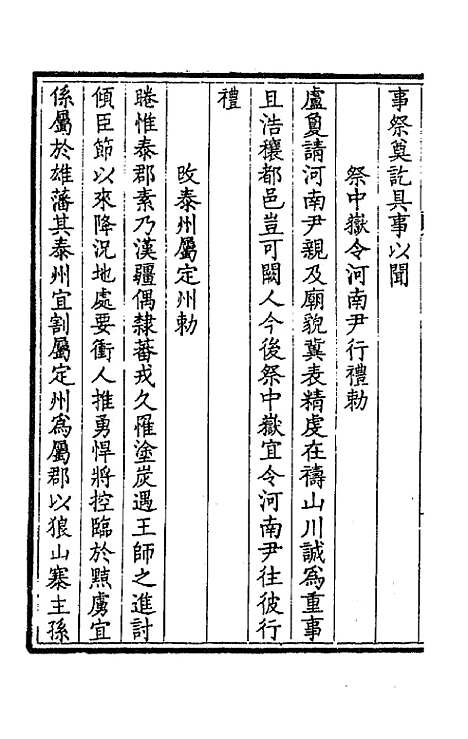 事祭奠訖具事以聞
祭中嶽令河南尹行禮勅
盧夐請河南尹親及廟貌冀表精虔在禱山川誠爲重事
且浩穰都邑豈可闕人今後祭中嶽宜令河南尹往彼行
禮
攺泰州屬定州勅
睠惟泰郡素乃漢疆偶隸蕃戎久罹塗炭遇王師之進討
傾臣節以來降況地處要衝人推勇悍將控臨於黠虜宜
係屬於雄藩其泰州宜割屬定州爲屬郡以狼山寨主孫